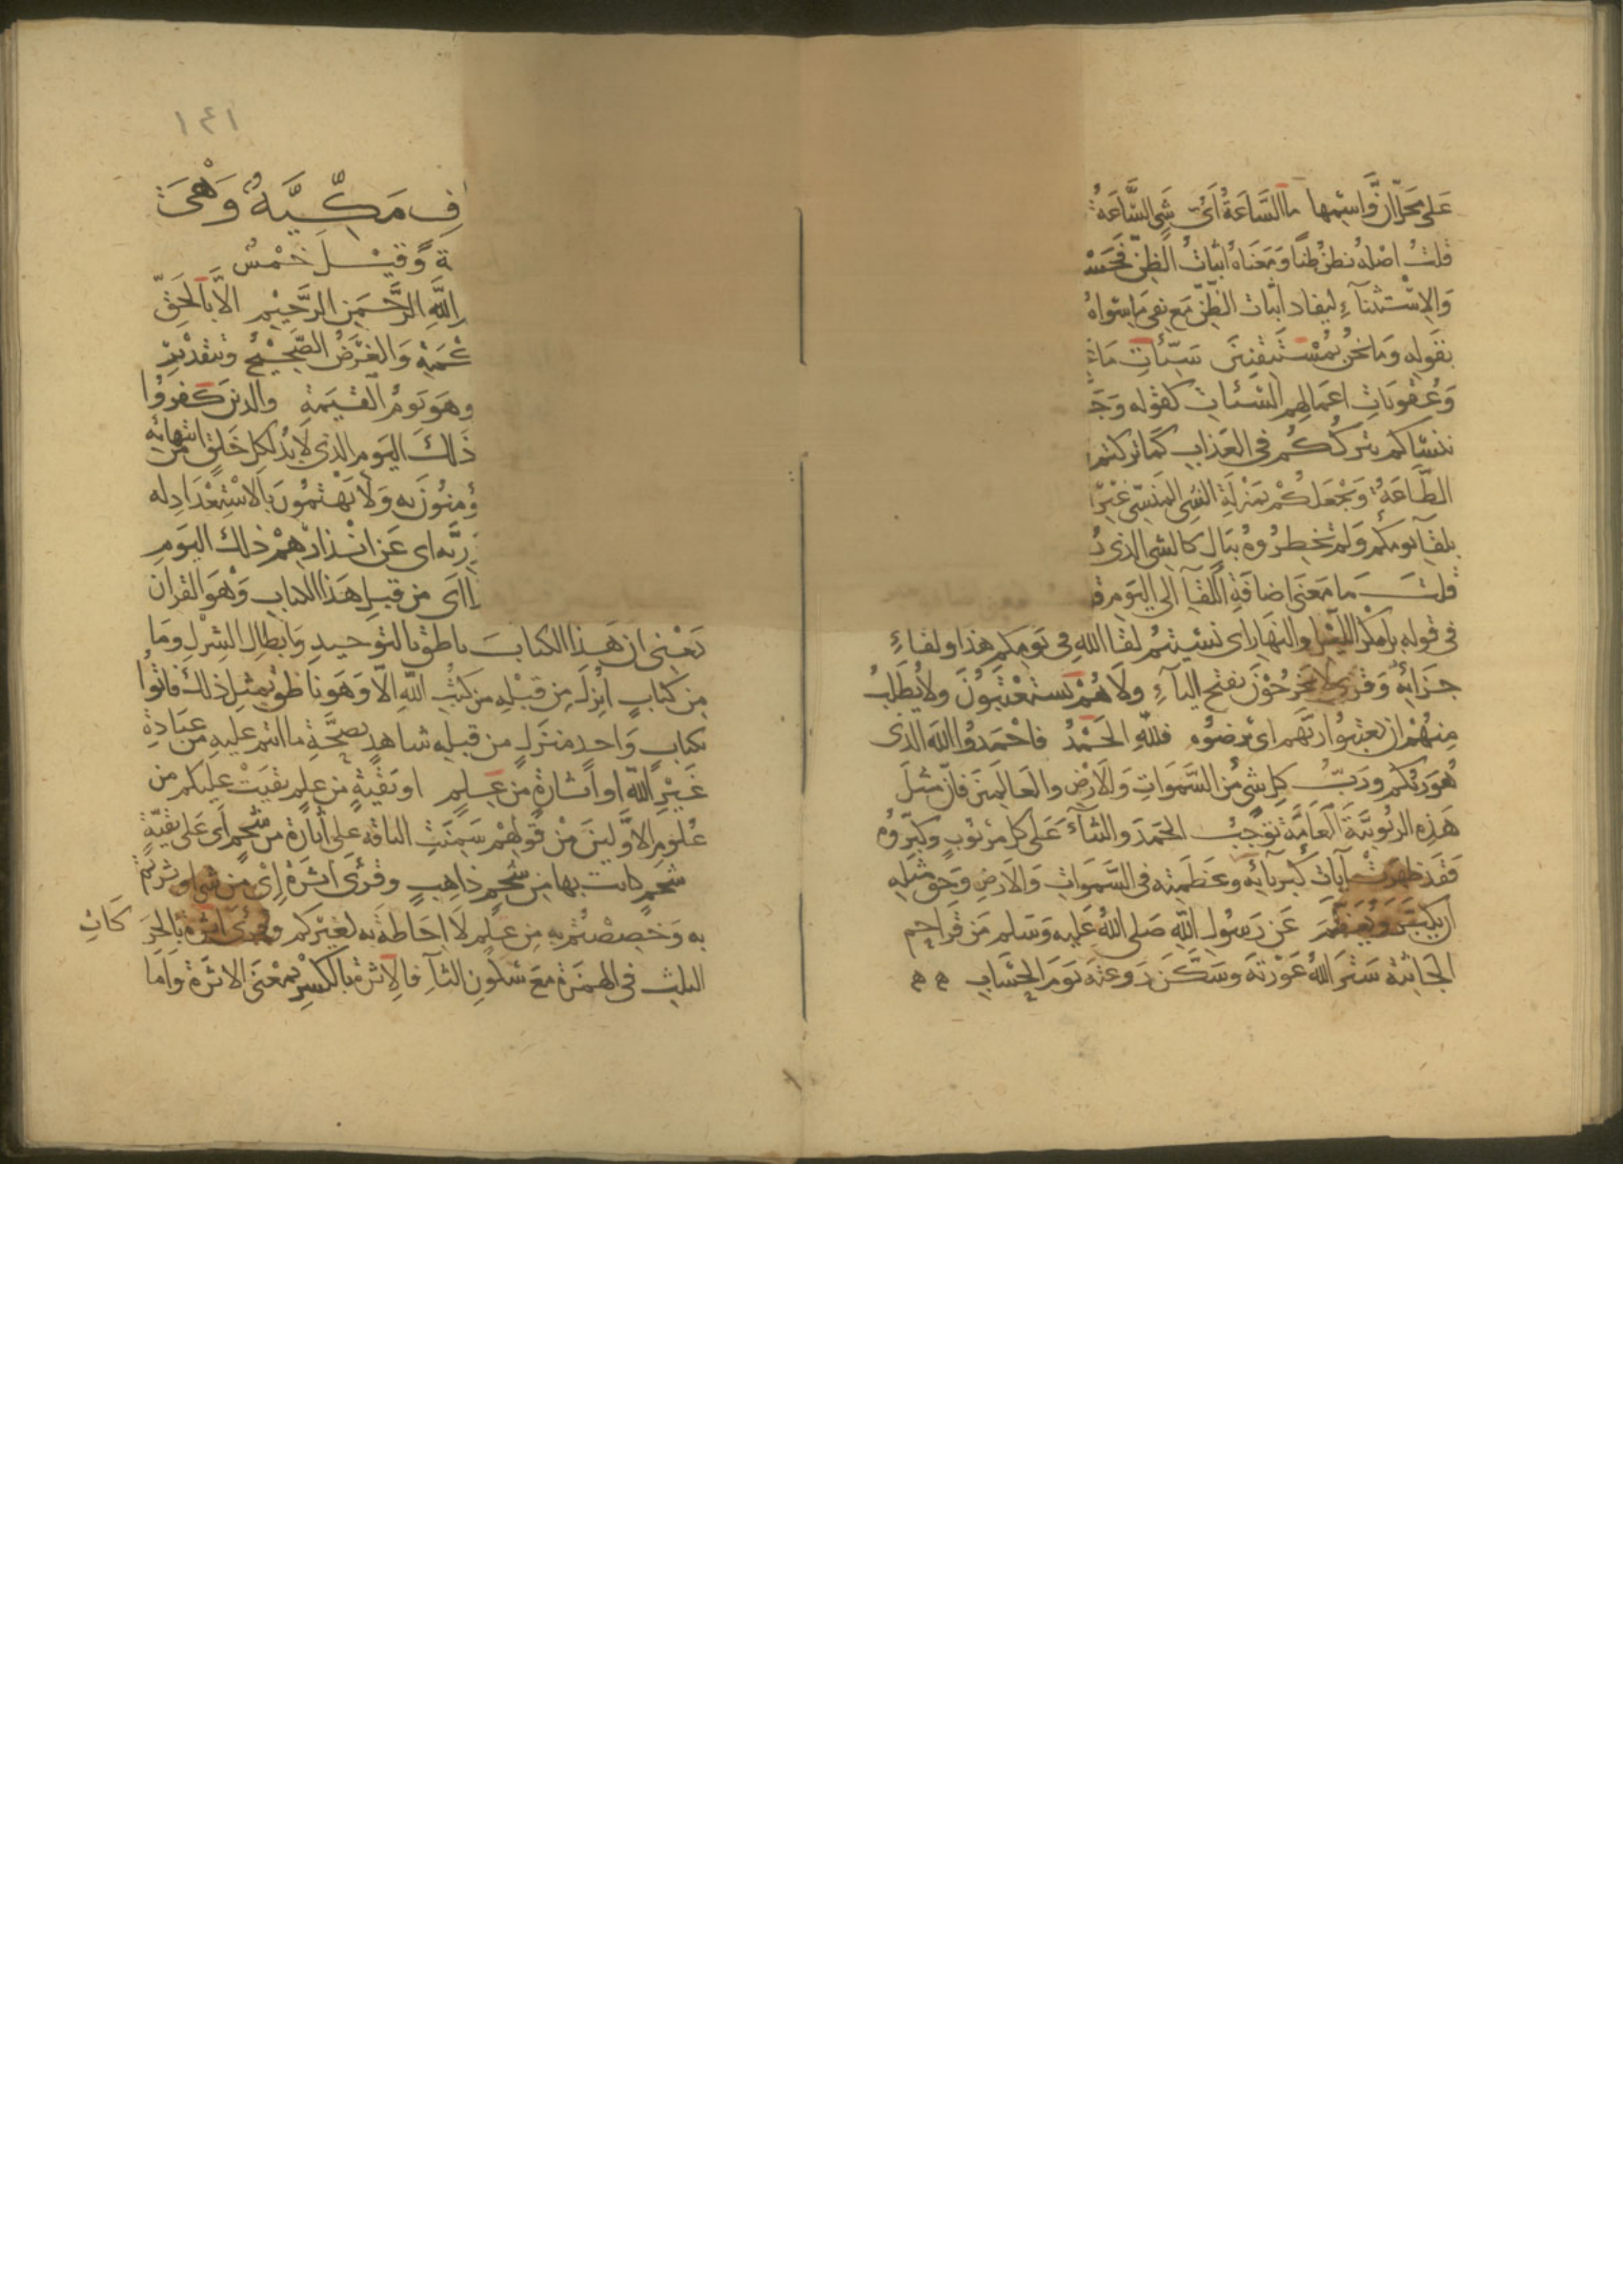 على محل ان واسمها ما الساعة اى شى الساعة
قلت اصله نظن ظنا ومعناه اثبات الظن فحسب
والاستثناء ليفاد اثبات الظن مع نفى ما سواه
بقوله وما نحن بمستيقنين سيئات ما
وعقوبات اعمالهم السيئات كقوله وجز
ننساكم نترككم فى العذاب كما تركتم
الطاعة ونجعلكم بمنزلة الشى المنسى غير
بلقاء يومكم ولم تخطروه ببال كالشى الذى
قلت ما معنى اضافة اللقآ الى اليوم
فى قوله بل مكر الليل والنهار اى نسيتم لقا الله فى يومكم هذا ولقاء
جزائه وقرى لا يخرجون بفتح اليآء ولا هم يستعتبون ولا يطلب
منهم ان يعتبوا ربهم اى يرضوه فلله الحمد فاحمدوا الله الذى
هو ربكم ورب كل شى من السموات والارض والعالمين فان مثل
هذه الربوبية العامة توجب الحمد والثنآء على كل مربوب وكبروه
فقد ظهرت آيات كبريائه وعظمته فى السموات والارض وحق مثله
ان يكبر ويعظم عن رسول الله صلى الله عليه وسلم من قرا حم
الجاثية ستر الله عورته وسكن روعته يوم الحساب
١٤١
ف مكية وهى
ة وقيل خمس
الله الرحمن الرحيم الا بالحق
كمة والغرض الصحيح وبتقدير
وهو يوم القيمة والذين كفروا
ذلك اليوم الذى لا بد لكل خلق من انتهائه
ؤمنون به ولا يهتمون بالاستعداد له
رية اى عن انذارهم ذلك اليوم
اى من قبل هذا الكتاب وهو القران
يعنى ان هذا الكتاب ناطق بالتوحيد وابطال الشرك وما
من كتاب انزل من قبله من كتب الله الا وهو ناطق بمثل ذلك فاتوا
بكتاب واحد منزل من قبله شاهد بصحة ما انتم عليه من عبادة
غير الله او اثارة من علم او بقية من علم بقيت عليكم من
علوم الاولين من قولهم سمنت الناقة على اثارة من شحم اى على بقية
شحم كانت بها من شحم ذاهب وقرى اثرة اى من شى اوثرتم
به وخصصتم به من علم لا احاطة به لغيركم وقرى اثرة بالحركات
الثلث فى الهمزة مع سكون الثآ فالاثرة بالكسر بمعنى الاثرة واما